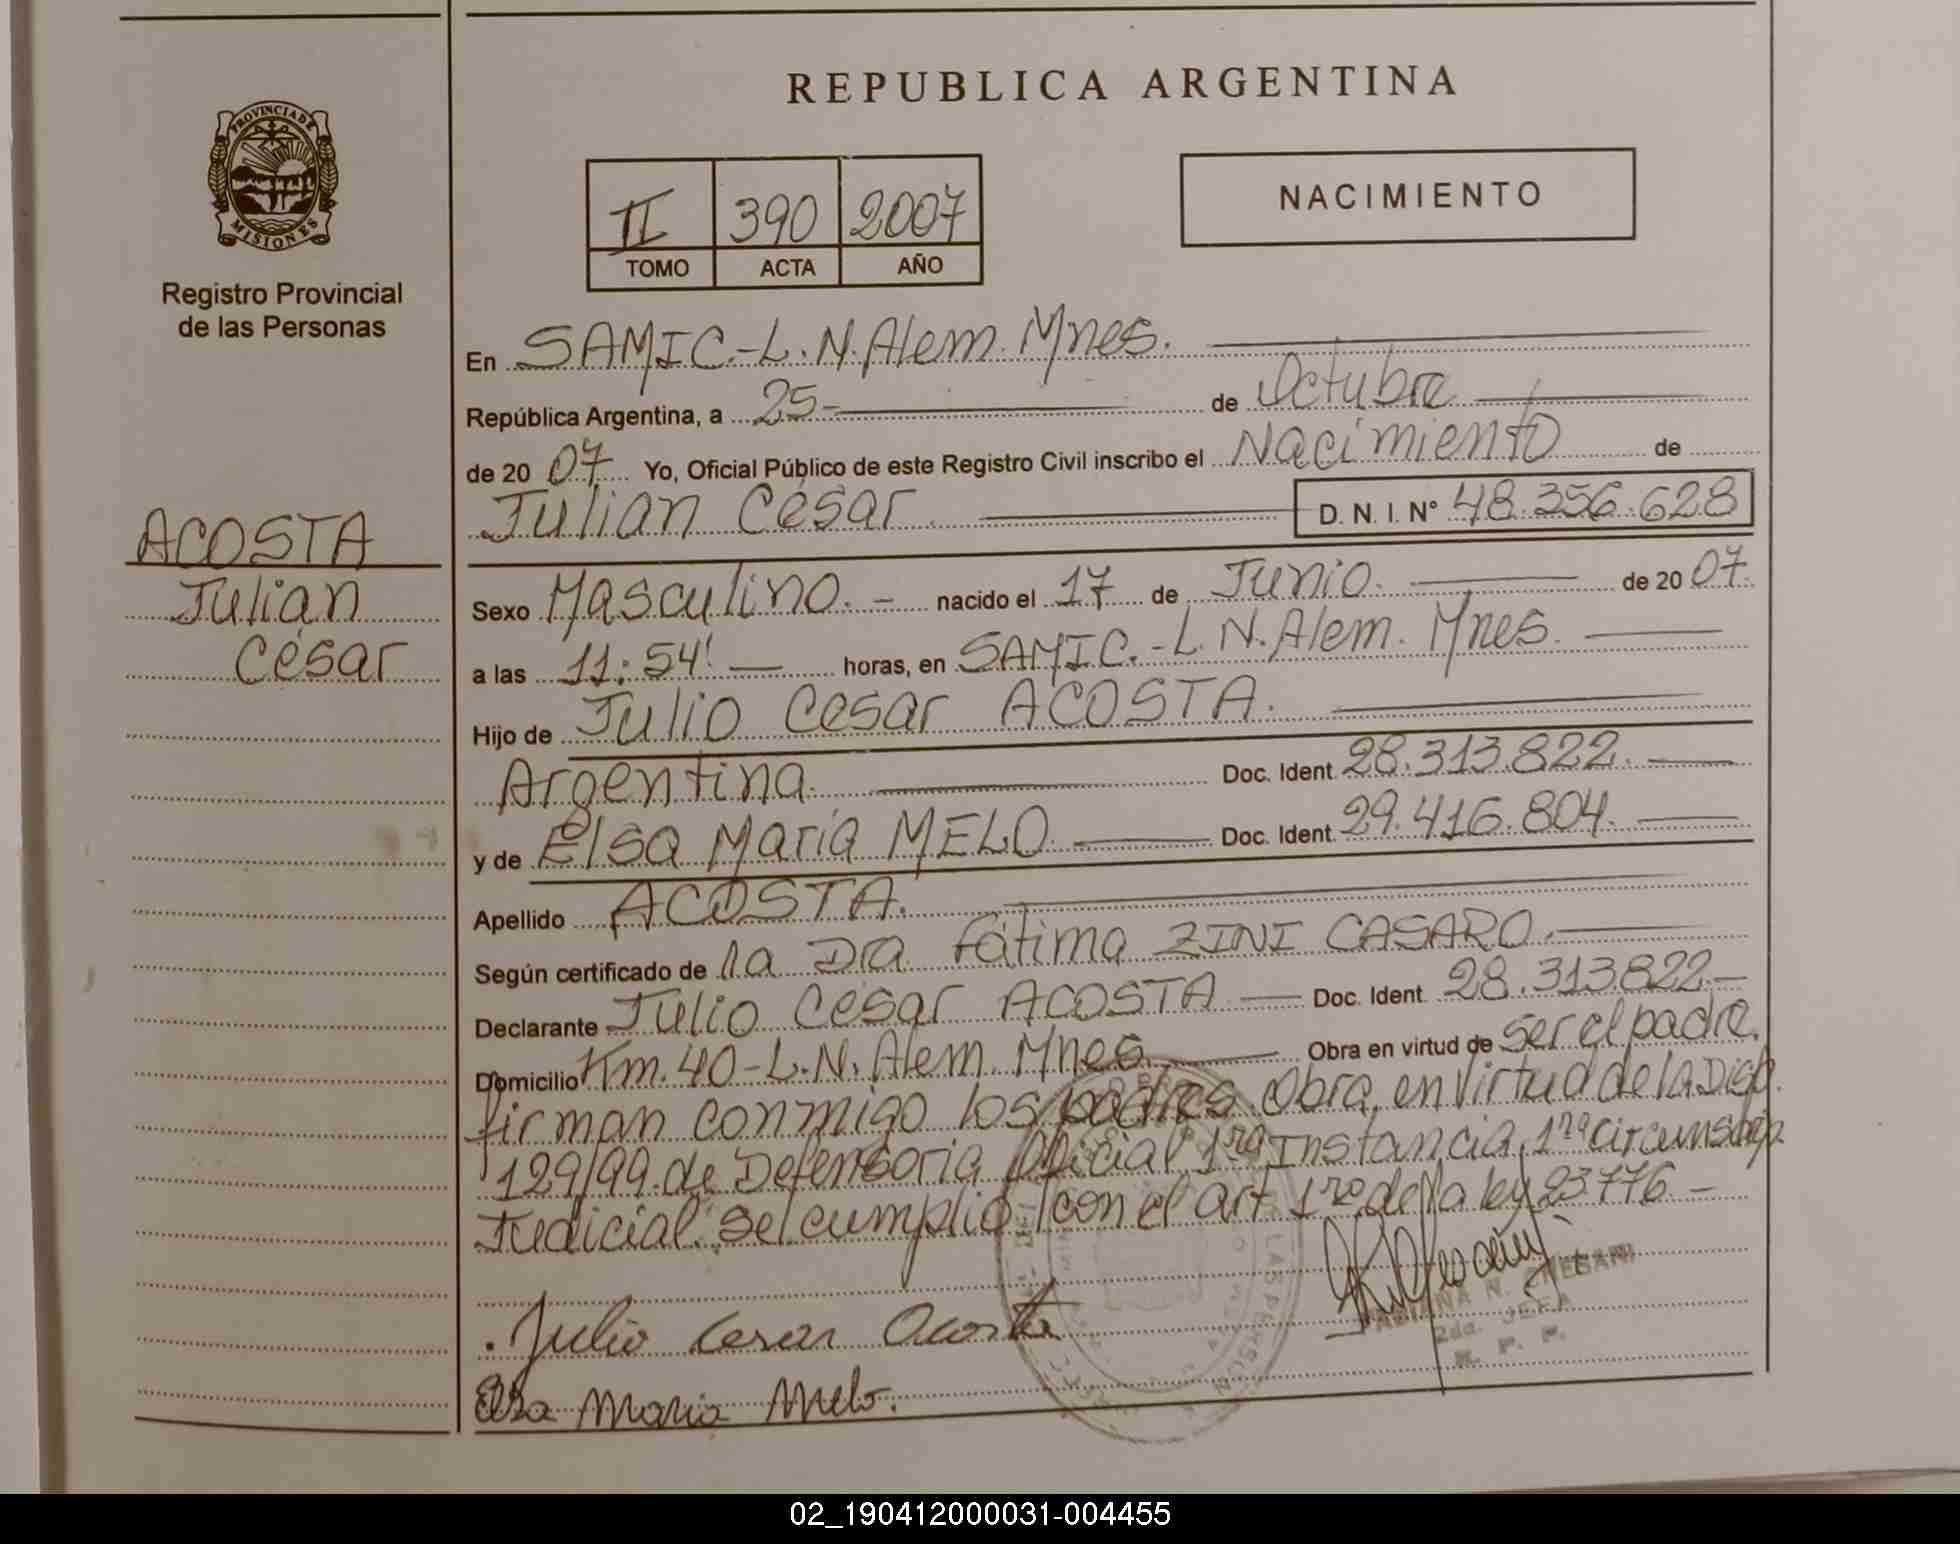 REPUBLICA ARGENTINA
PROVINCIA DE
MISIONES
Registro Provincial
de las Personas
II 390 2007
TOMO ACTA AÑO
NACIMIENTO
En SAMIC.-L.N.Alem. Mnes.
República Argentina, a 25- de Octubre
de 20 07 Yo, Oficial Público de este Registro Civil inscribo el Nacimiento de
Julian César D. N. I. N° 48.356.628
ACOSTA
Julian
César
Sexo Masculino.- nacido el 17 de Junio. de 20 07.
a las 11:54' horas, en SAMIC.-L.N.Alem. Mnes.
Hijo de Julio Cesar ACOSTA.
Argentina. Doc. Ident. 28.313.822.
y de Elsa María MELO. Doc. Ident. 29.416.804.
Apellido ACOSTA.
Según certificado de la Dra Fátima ZINI CASARO.
Declarante Julio César ACOSTA Doc. Ident. 28.313822.-
Domicilio Km.40-L.N.Alem.Mnes. Obra en virtud de ser el padre.
firman conmigo los padres. Obra en virtud de la Disp.
129/99.de Defensoria Oficial 1ra Instancia, 1ra circunscrip.
Judicial. se cumplio con el art 1ro de la ley 23776-
Julio Cesar Acosta
Elsa Maria Melo.
2da. JEFA
R. P. P.
02_190412000031-004455